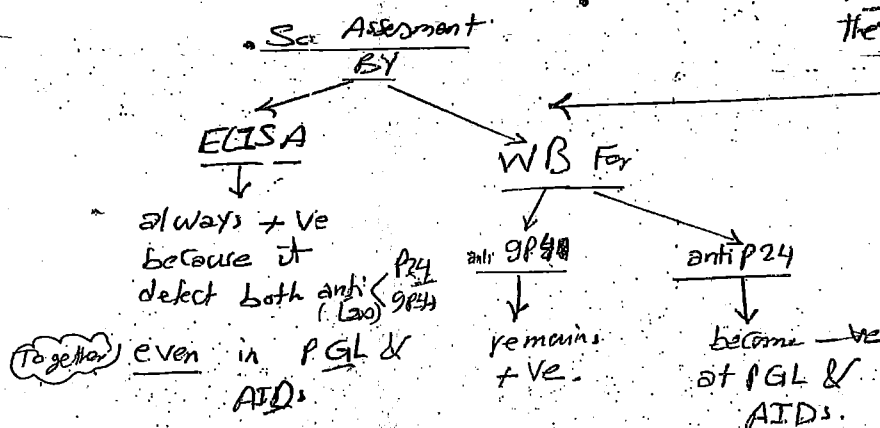 The
Assesment
BY
ELISA
WB For
always +ve
because it
detect both anti P24
together even in PGL &
AIDs
anti gp41
remains
+ve.
anti p24
become -ve
at PGL &
AIDs.